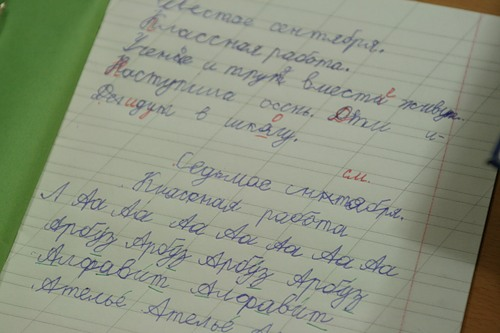 Шестое сентября.
Классная работа.
Ученье и труд вместе живут.
Наступила осень. Дети и-
дут в школу.
см.
Седьмое сентября.
Классная работа
Л Аа Аа Аа Аа Аа Аа Аа
Арбуз Арбуз Арбуз Арбуз
Алфавит Алфавит
Ателье Ателье